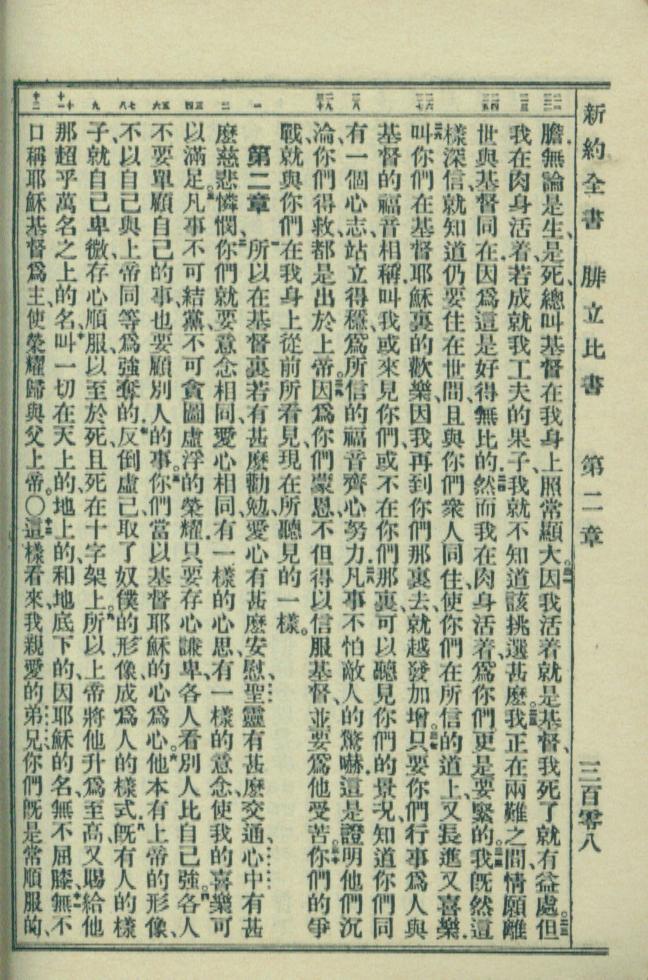 新約全書 腓立比書 第二章 三百零八
膽、無論是生、是死、總叫基督在我身上照常顯大。因我活着就是基督、我死了就有益處。但
我在肉身活着、若成就我工夫的果子、我就不知道該挑選甚麼。我正在兩難之間、情願離
世與基督同在、因爲這是好得無比的。然而我在肉身活着、爲你們更是要緊的。我旣然這
樣深信、就知道仍要住在世間、且與你們衆人同住、使你們在所信的道上、又長進又喜樂.
叫你們在基督耶穌裏的歡樂、因我再到你們那裏去、就越發加增。只要你們行事爲人與
基督的福音相稱、叫我或來見你們、或不在你們那裏、可以聽見你們的景況、知道你們同
有一個心志、站立得穩、爲所信的福音齊心努力。凡事不怕敵人的驚嚇、這是證明他們沉
淪、你們得救、都是出於上帝。因爲你們蒙恩、不但得以信服基督、並要爲他受苦。你們的爭
戰、就與你們在我身上從前所看見現在所聽見的一樣。
第二章 所以在基督裏若有甚麼勸勉、愛心有甚麼安慰、聖靈有甚麼交通、心中有甚
麼慈悲憐憫、你們就要意念相同、愛心相同、有一樣的心思、有一樣的意念、使我的喜樂可
以滿足。凡事不可結黨、不可貪圖虛浮的榮耀.只要存心謙卑、各人看別人比自己強。各人
不要單顧自己的事、也要顧別人的事。你們當以基督耶穌的心爲心。他本有上帝的形像、
不以自己與上帝同等爲強奪的.反倒虛己、取了奴僕的形像、成爲人的樣式.旣有人的樣
子、就自己卑微、存心順服、以至於死、且死在十字架上。所以上帝將他升爲至高、又賜給他
那超乎萬名之上的名、叫一切在天上的、地上的、和地底下的、因耶穌的名、無不屈膝、無不
口稱耶穌基督爲主、使榮耀歸與父上帝。○這樣看來、我親愛的弟兄你們旣是常順服的、